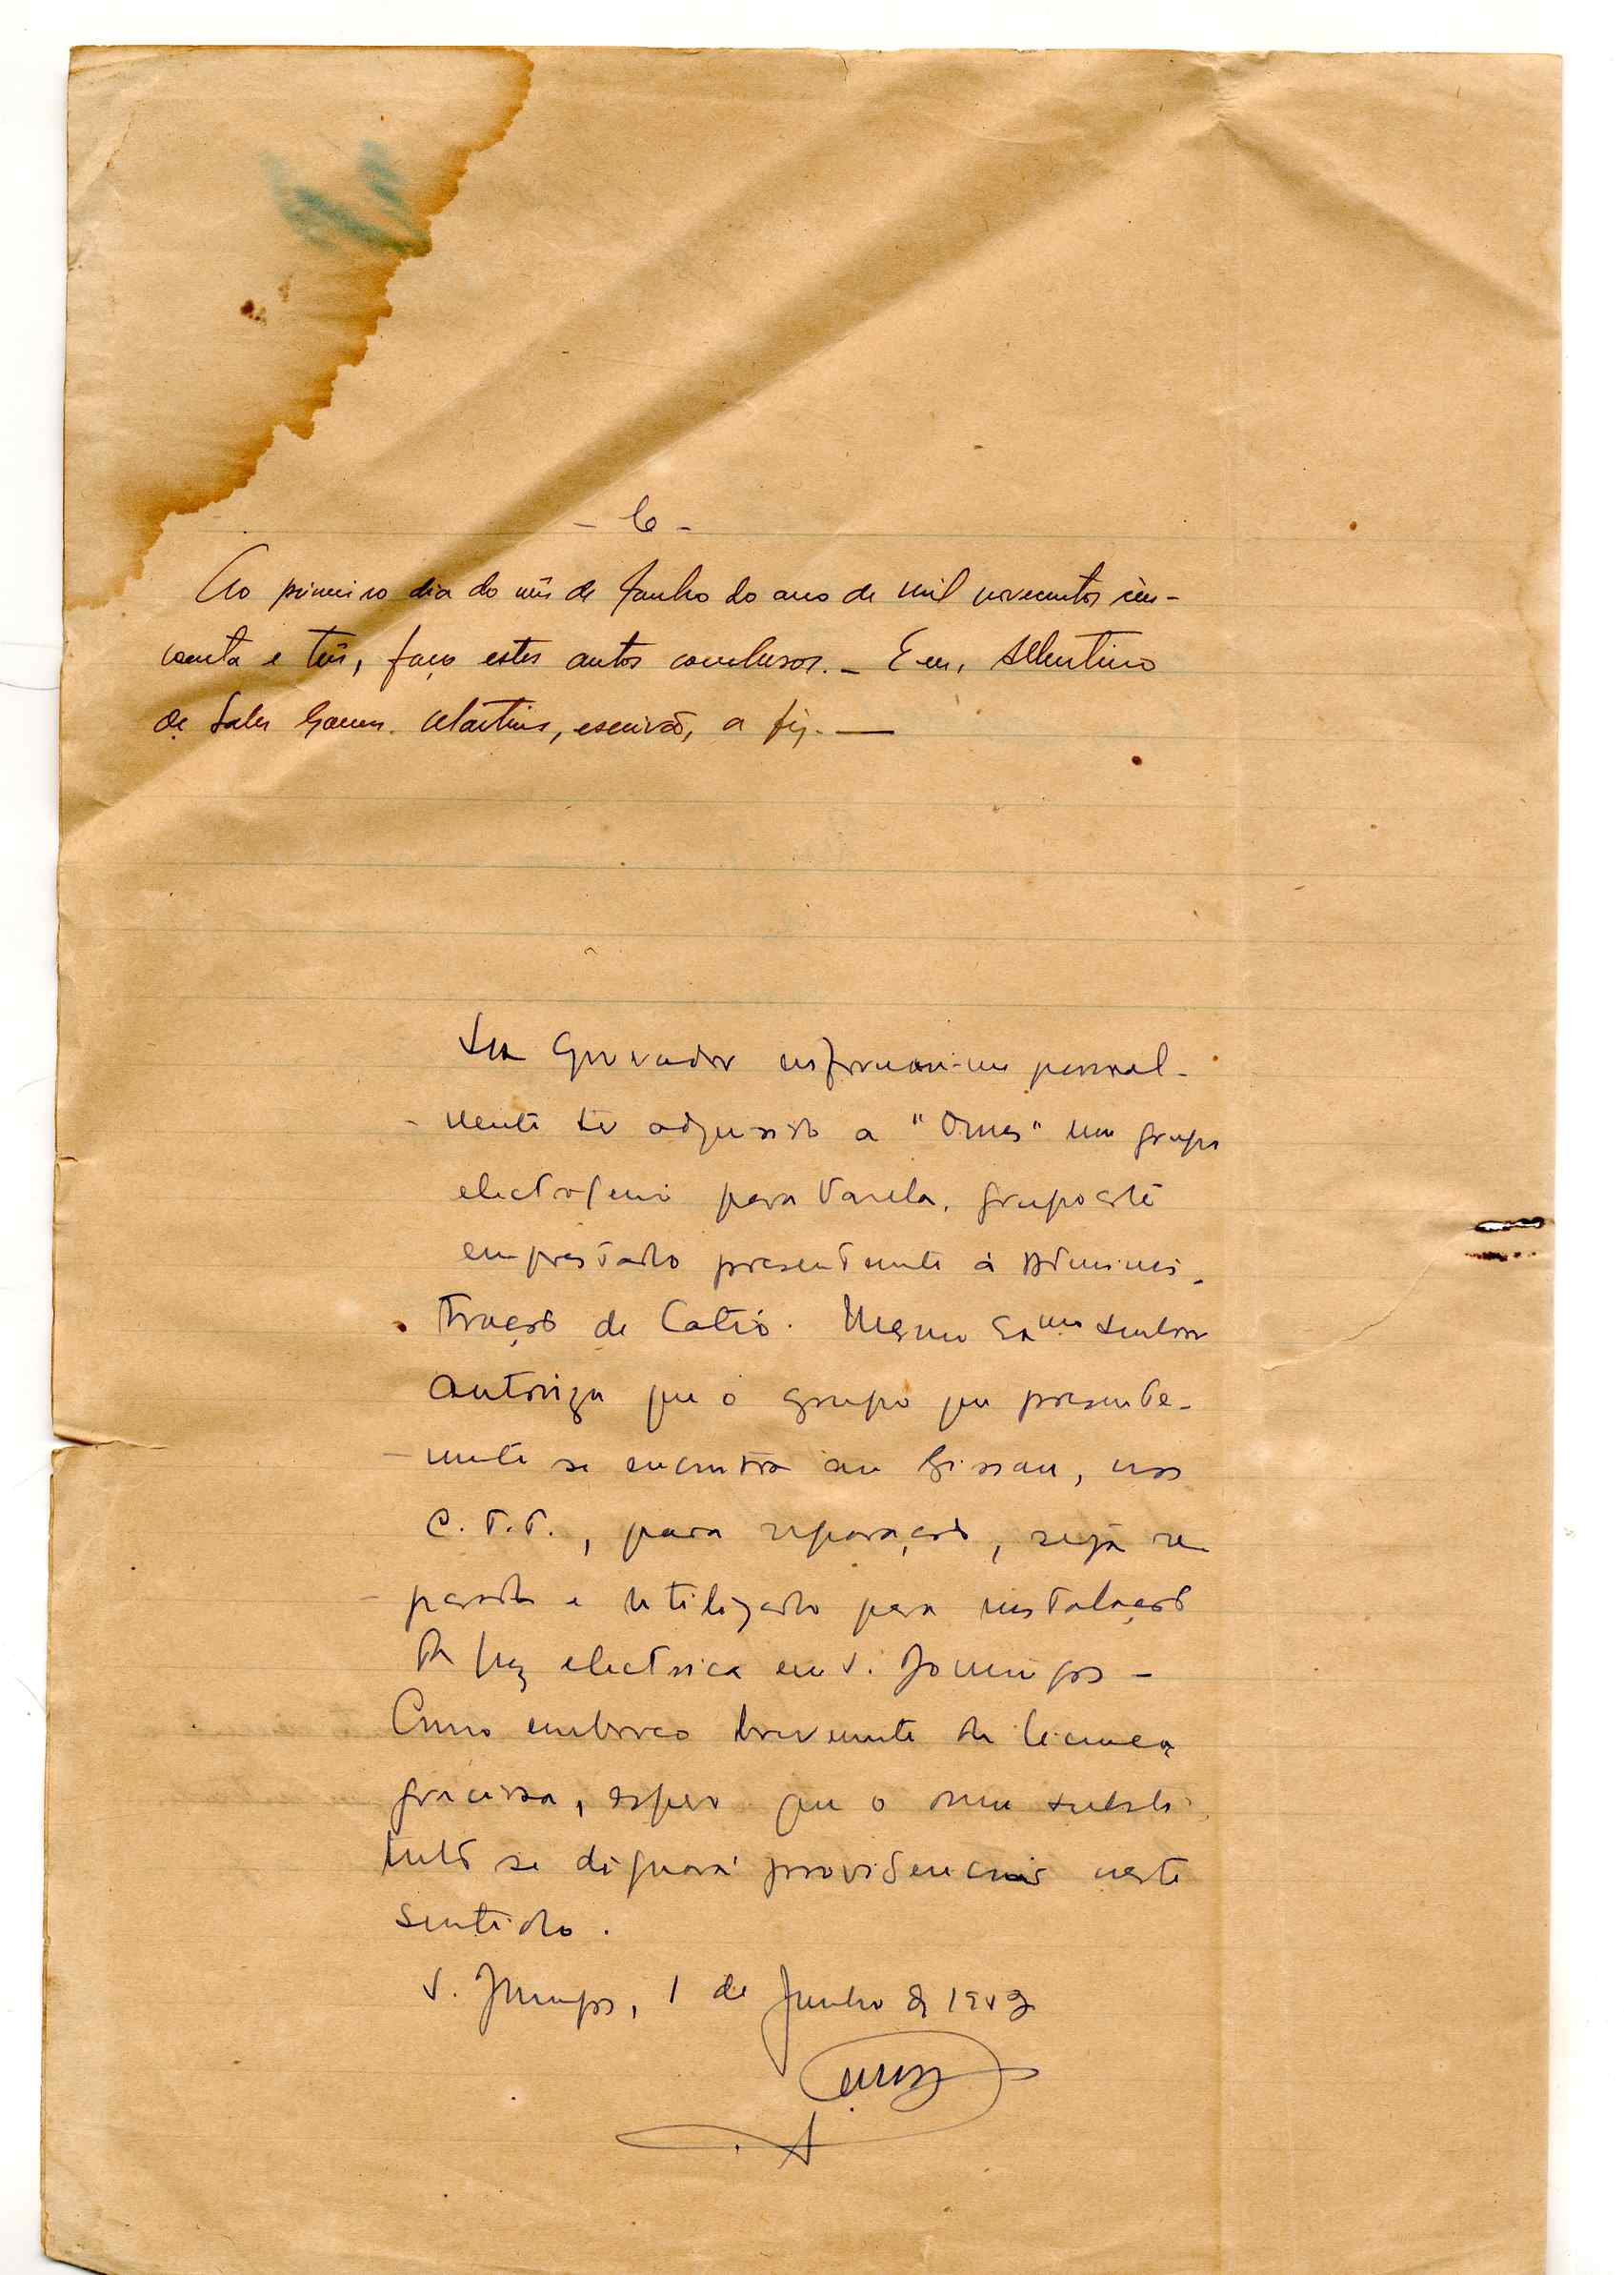 Ao primeiro dia do mês de Junho do ano de mil novecentos cin-
coenta e três, faço estes autos conclusos. - E eu, Albertino
de Sales Gomes Martins, escrivão, a fiz. —
Sua Governador informou-me pessoal-
- mente ter adquirido a um grupo
electrogenio para Varela, grupo este
emprestado presentemente à Adminis-
tração de Catió. Mesmo Exmo Senhor
autoriza que o grupo que presente-
- mente se encontra em Bissau, nos
C.T.T., para reparação, seja re
parado e utilizado para instalação
de luz electrica em S. Domingos -
Como embarco brevemente de licença
graciosa, espero que o meu substi
tuto se dignará providenciar neste
sentido.
S. Domingos, 1 de Junho de 1953